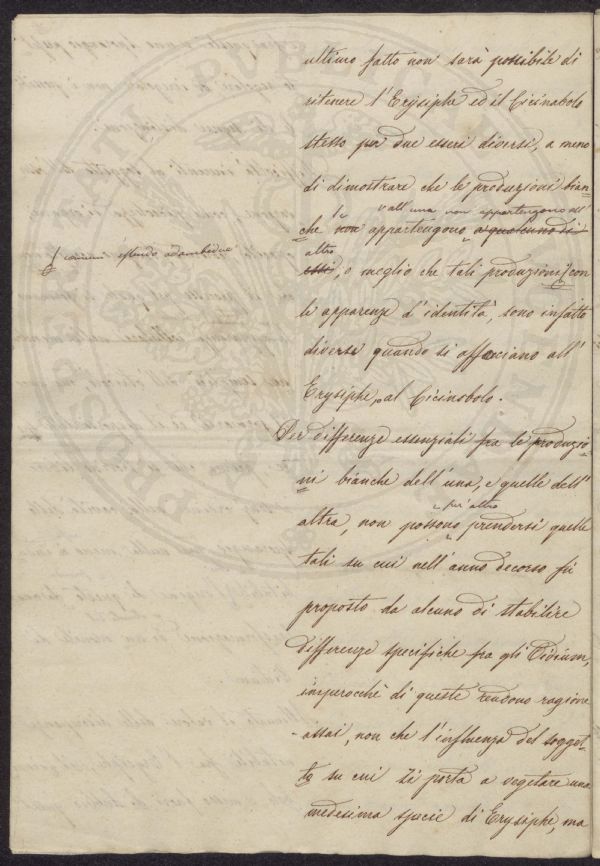 ultimo fatto non sarà possibile di
ritenere l'Erysiphe ed il Cicinabolo
stesso per due esseri diversi, a meno
di dimostrare che le produzioni bian-
o all'una non appartengono all'
che non appartengono a qualcuno di
altro
essi, o meglio che tali produzioni con
comuni essendo adambedue
le apparenze d'identità, sono infatto
diverse quando si associano all'
Erysiphe, o al Cicinobolo.
Per differenze essenziali fra le produzio-
ni bianche dell'una, e quelle dell'
per altro
altra, non possono prendersi quelle
tali su cui nell'anno decorso fu
proposto da alcuno di stabilire
differenze specifiche fra gli Oidium,
imperocchè di queste rendono ragione
assai, non che l'influenza del sogget-
to su cui si porta a vegetare una
medesima specie di Erysiphe, ma